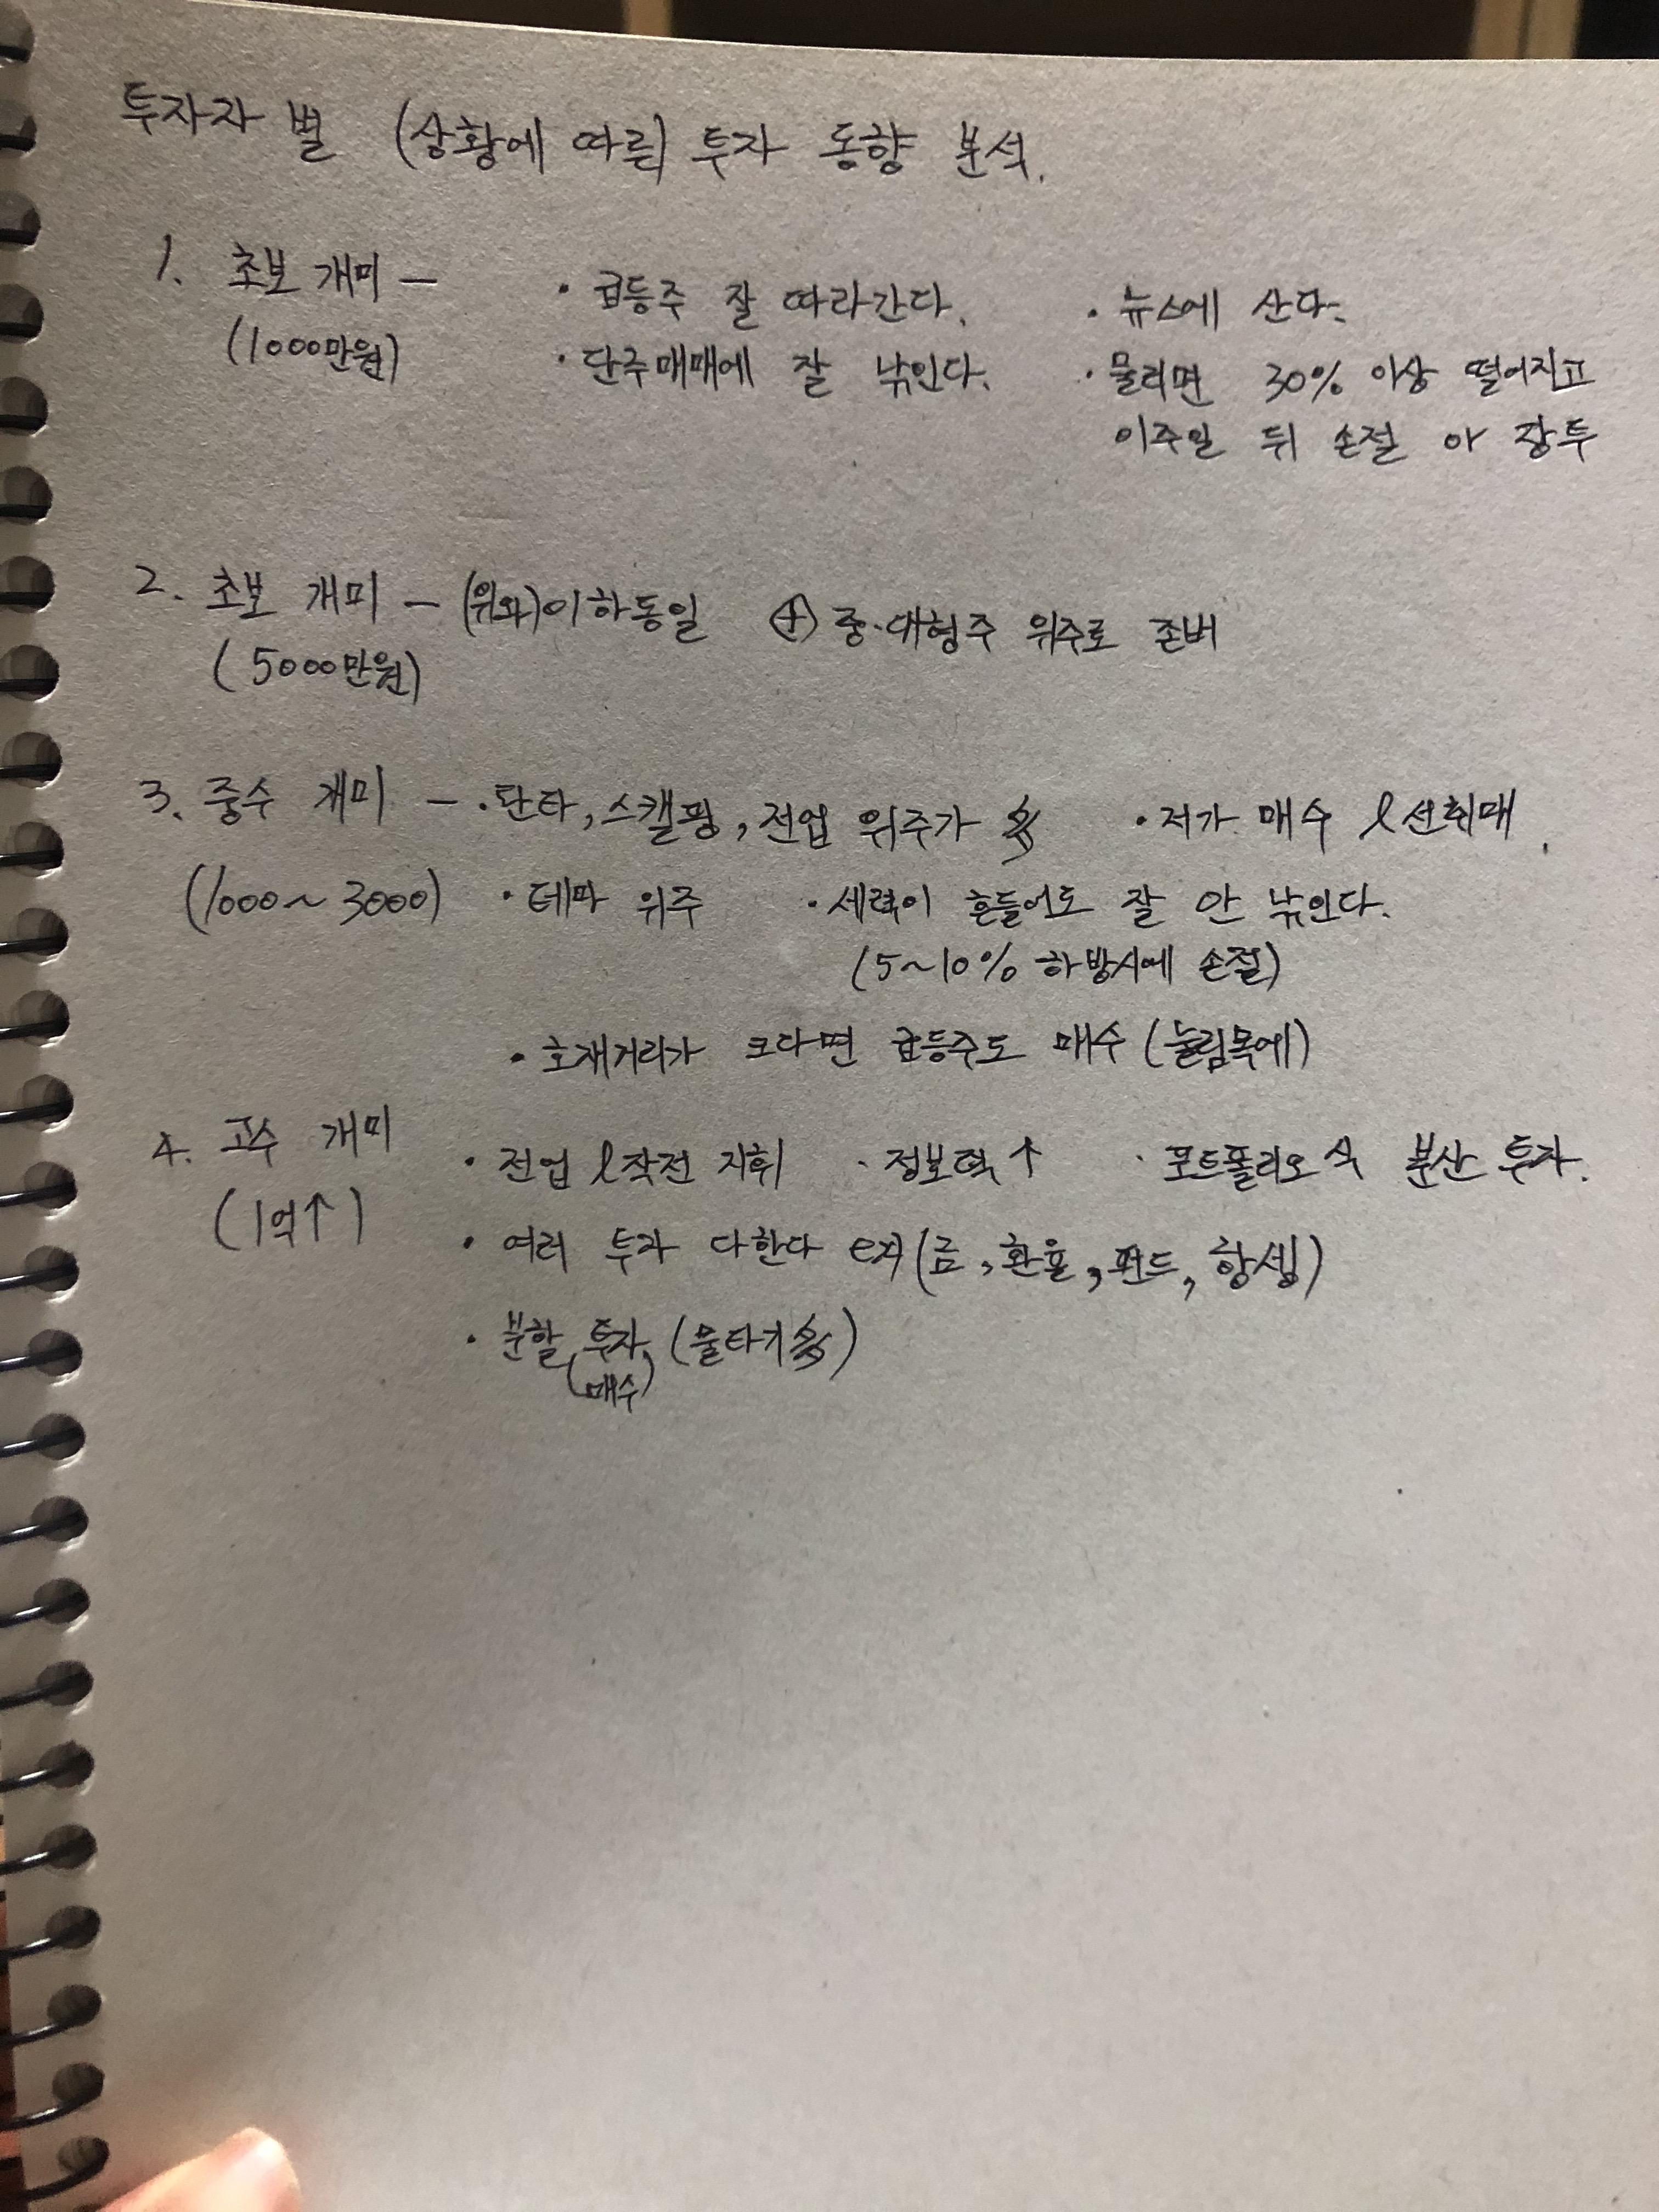 투자자 별 (상황에 따른) 투자 동향 분석.
1. 초보 개미 - · 급등주 잘 따라간다. · 뉴스에 산다.
(1000만원) · 단주매매에 잘 낚인다. · 물리면 30% 이상 떨어지고
이주일 뒤 손절 or 장투
2. 초보 개미 - (위와)이하동일 ⊕ 중·대형주 위주로 존버
(5000만원)
3. 중수 개미 - · 단타, 스캘핑, 전업 위주가 多 · 저가 매수 & 선취매.
(1000~3000) · 테마 위주 · 세력이 흔들어도 잘 안 낚인다.
(5~10% 하방시에 손절)
· 호재거리가 크다면 급등주도 매수 (눌림목에)
4. 고수 개미 · 전업 & 작전 지휘 · 정보력↑ · 포트폴리오식 분산 투자.
(1억↑) · 여러 투자 다한다 ex) (금, 환율, 펀드, 항셍)
· 분할 투자 (물타기多)
(매수)